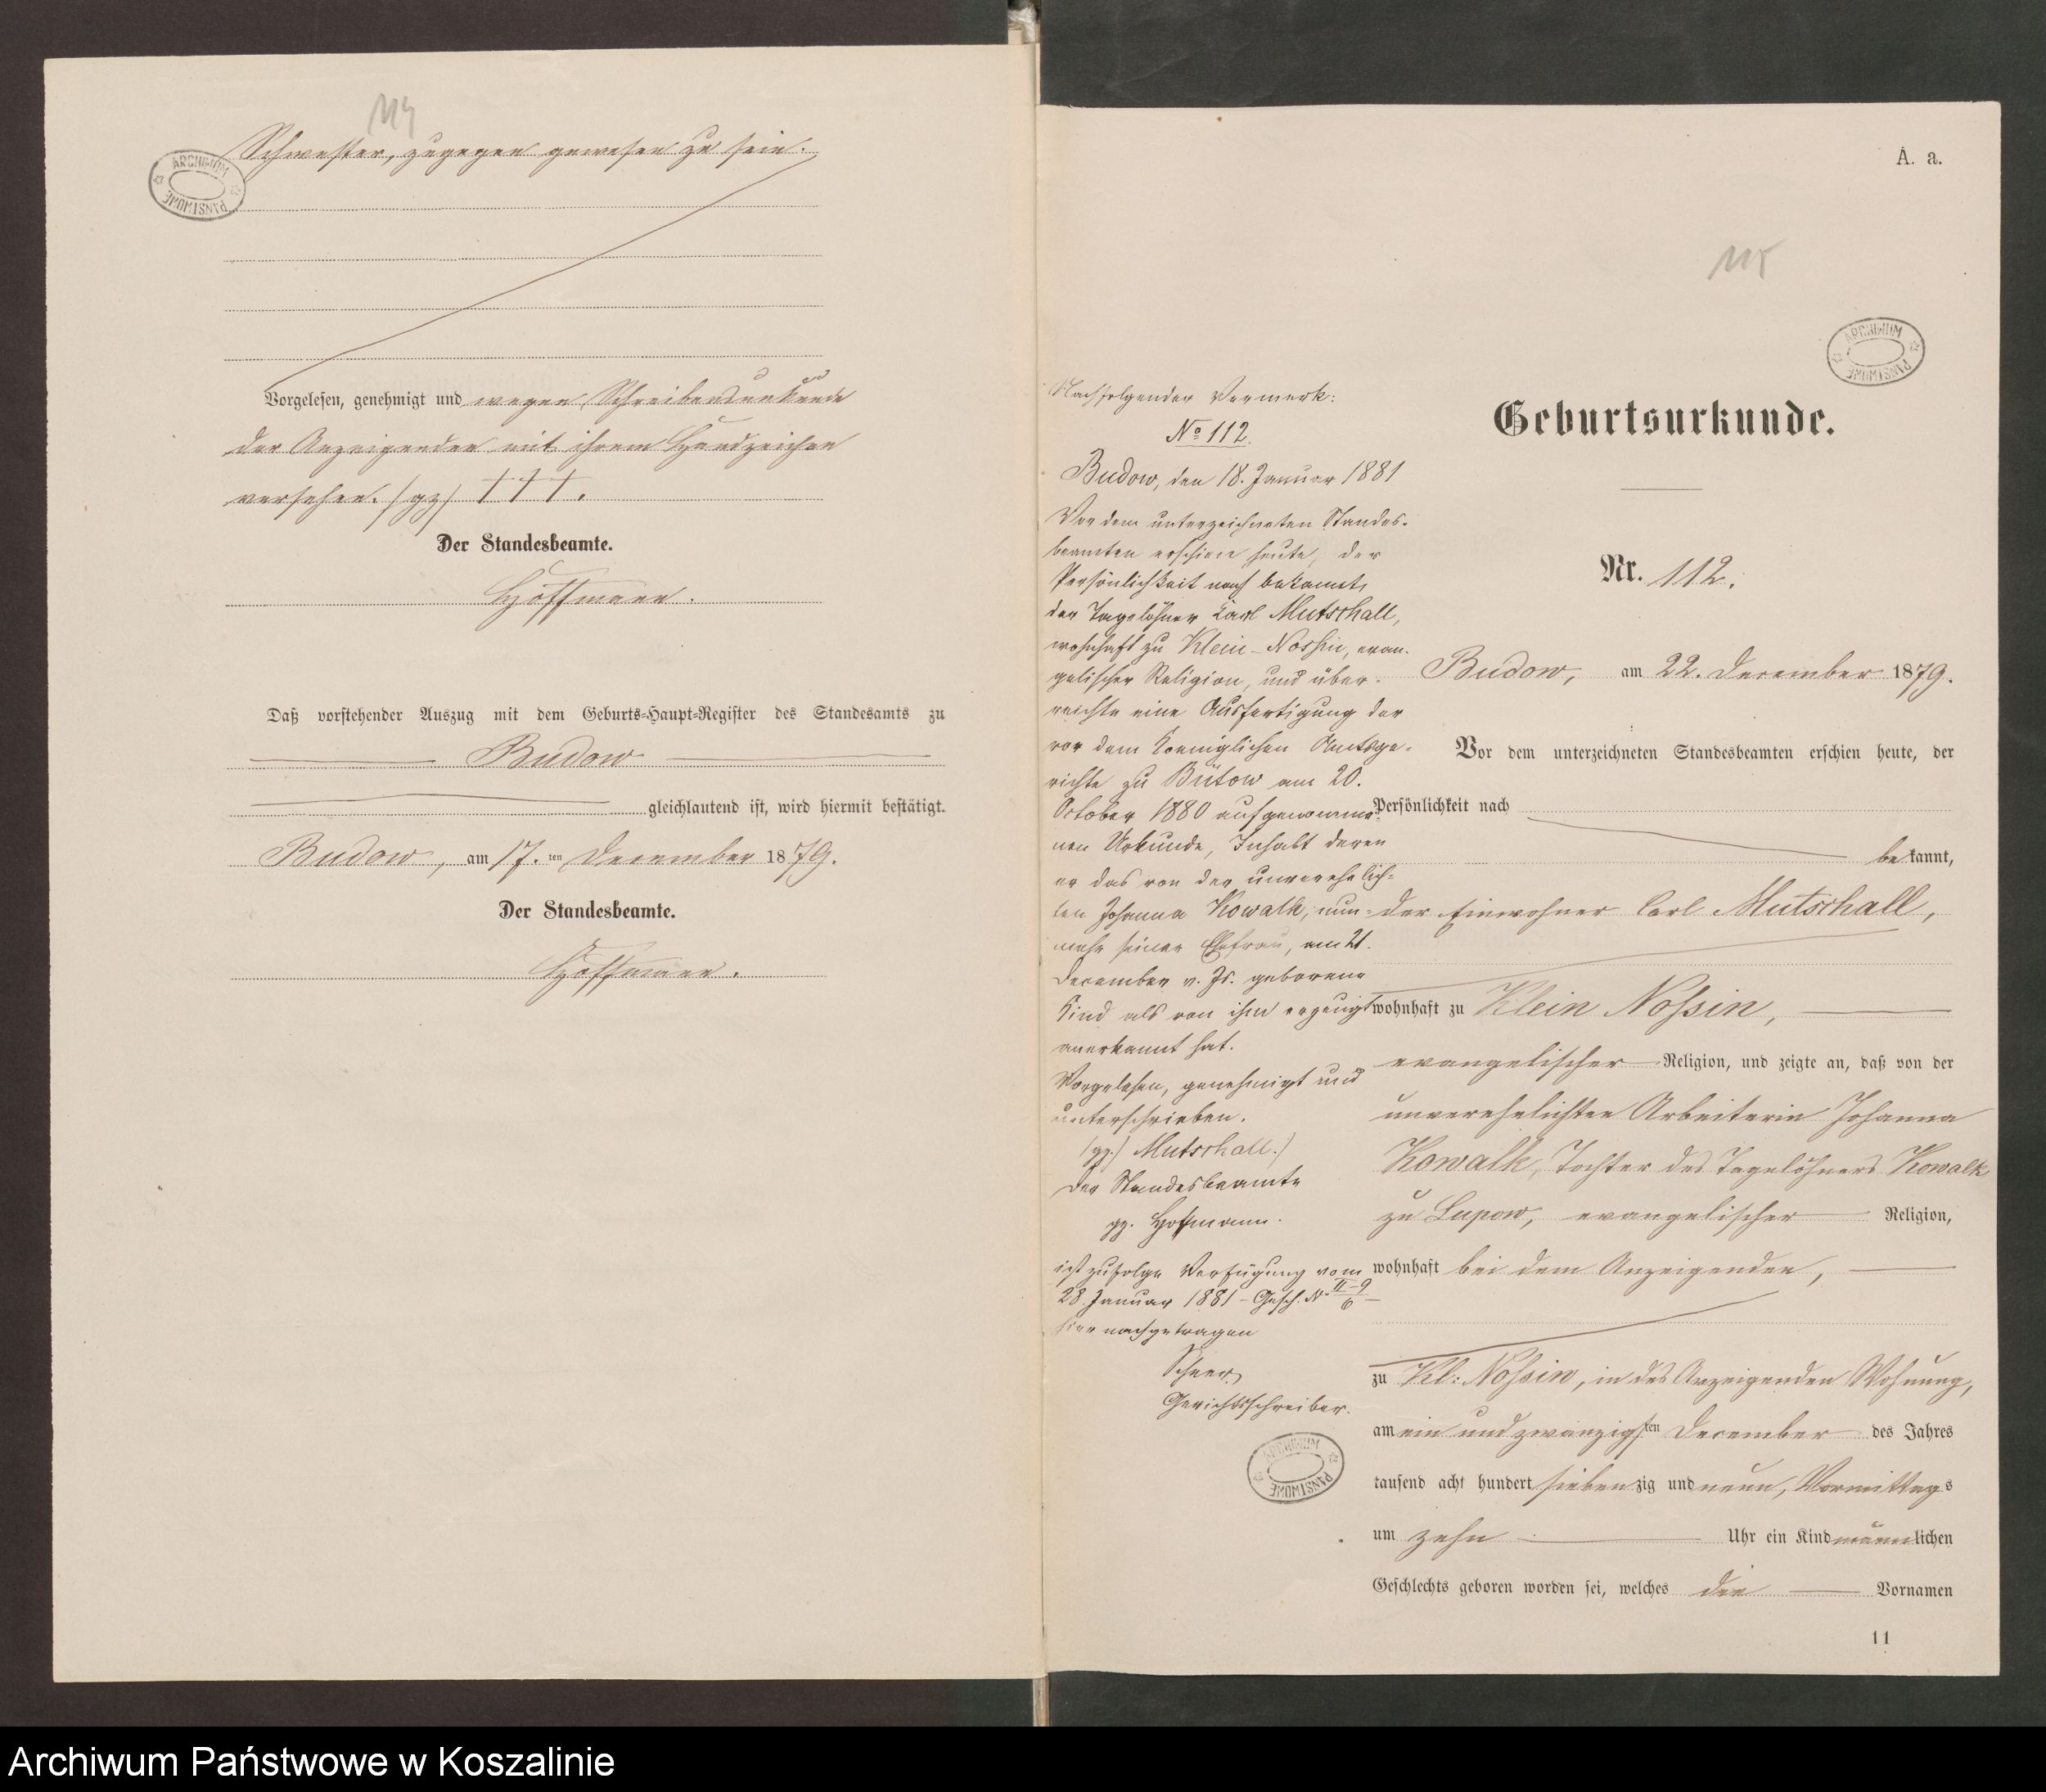 114
Schwester, zugegen gewesen zu sein.
ARCHIWUM PAŃSTWOWE
Vorgelesen, genehmigt und wegen Schreibensunkunde
der Anzeigenden mit ihrem Handzeichen
versehen. (gz) +++.
Der Standesbeamte.
Hoffmann.
Daß vorstehender Auszug mit dem Geburts-Haupt-Register des Standesamts zu
Budow
gleichlautend ist, wird hiermit bestätigt.
Budow, am 17. ten December 1879.
Der Standesbeamte.
Hoffmann.
A. a.
115
ARCHIWUM PAŃSTWOWE
Nachfolgender Vermerk:
No 112.
Budow, den 18. Januar 1881
Vor dem unterzeichneten Standes-
beamten erschien heute, der
Persönlichkeit nach bekannt,
der Tagelöhner Carl Mutschall,
wohnhaft zu Klein-Nossin, evan-
gelischer Religion, und über-
reichte eine Ausfertigung der
vor dem Koeniglichen Amtsge-
richte zu Bütow am 20.
October 1880 aufgenomme-
nen Urkunde, Inhalt deren
er das von der unverehelich-
ten Johanna Kowalk, nun-
mehr seiner Ehefrau, am 21.
December v. Js. geborene
Kind als von ihm erzeugt
anerkannt hat.
Vorgelesen, genehmigt und
unterschrieben.
(gz.) Mutschall.)
Der Standesbeamte
gz. Hoffmann.
ist zufolge Verfügung vom
28 Januar 1881 - Gesch. N. II-9/6 -
hier nachgetragen
Gerichtsschreiber.
ARCHIWUM PAŃSTWOWE
Geburtsurkunde.
Nr. 112.
Budow, am 22. December 1879.
Vor dem unterzeichneten Standesbeamten erschien heute, der
Persönlichkeit nach
bekannt,
der Einwohner Carl Mutschall,
wohnhaft zu Klein Nossin,
evangelischer Religion, und zeigte an, daß von der
unverehelichten Arbeiterin Johanna
Kowalk, Tochter des Tagelöhners Kowalk
zu Lupow, evangelischer Religion,
wohnhaft bei dem Anzeigenden,
zu Kl: Nossin, in des Anzeigenden Wohnung,
am ein und zwanzigsten December des Jahres
tausend acht hundert siebenzig und neun, Vormittags
um zehn Uhr ein Kind männlichen
Geschlechts geboren worden sei, welches die Vornamen
11
Archiwum Państwowe w Koszalinie